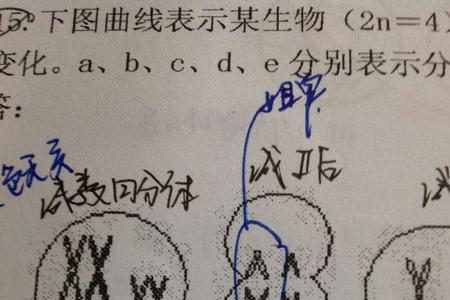 15. 下图曲线表示某生物（2n＝4）
变化。a、b、c、d、e 分别表示分
答：
姐单
减Ⅱ后
减数四分体